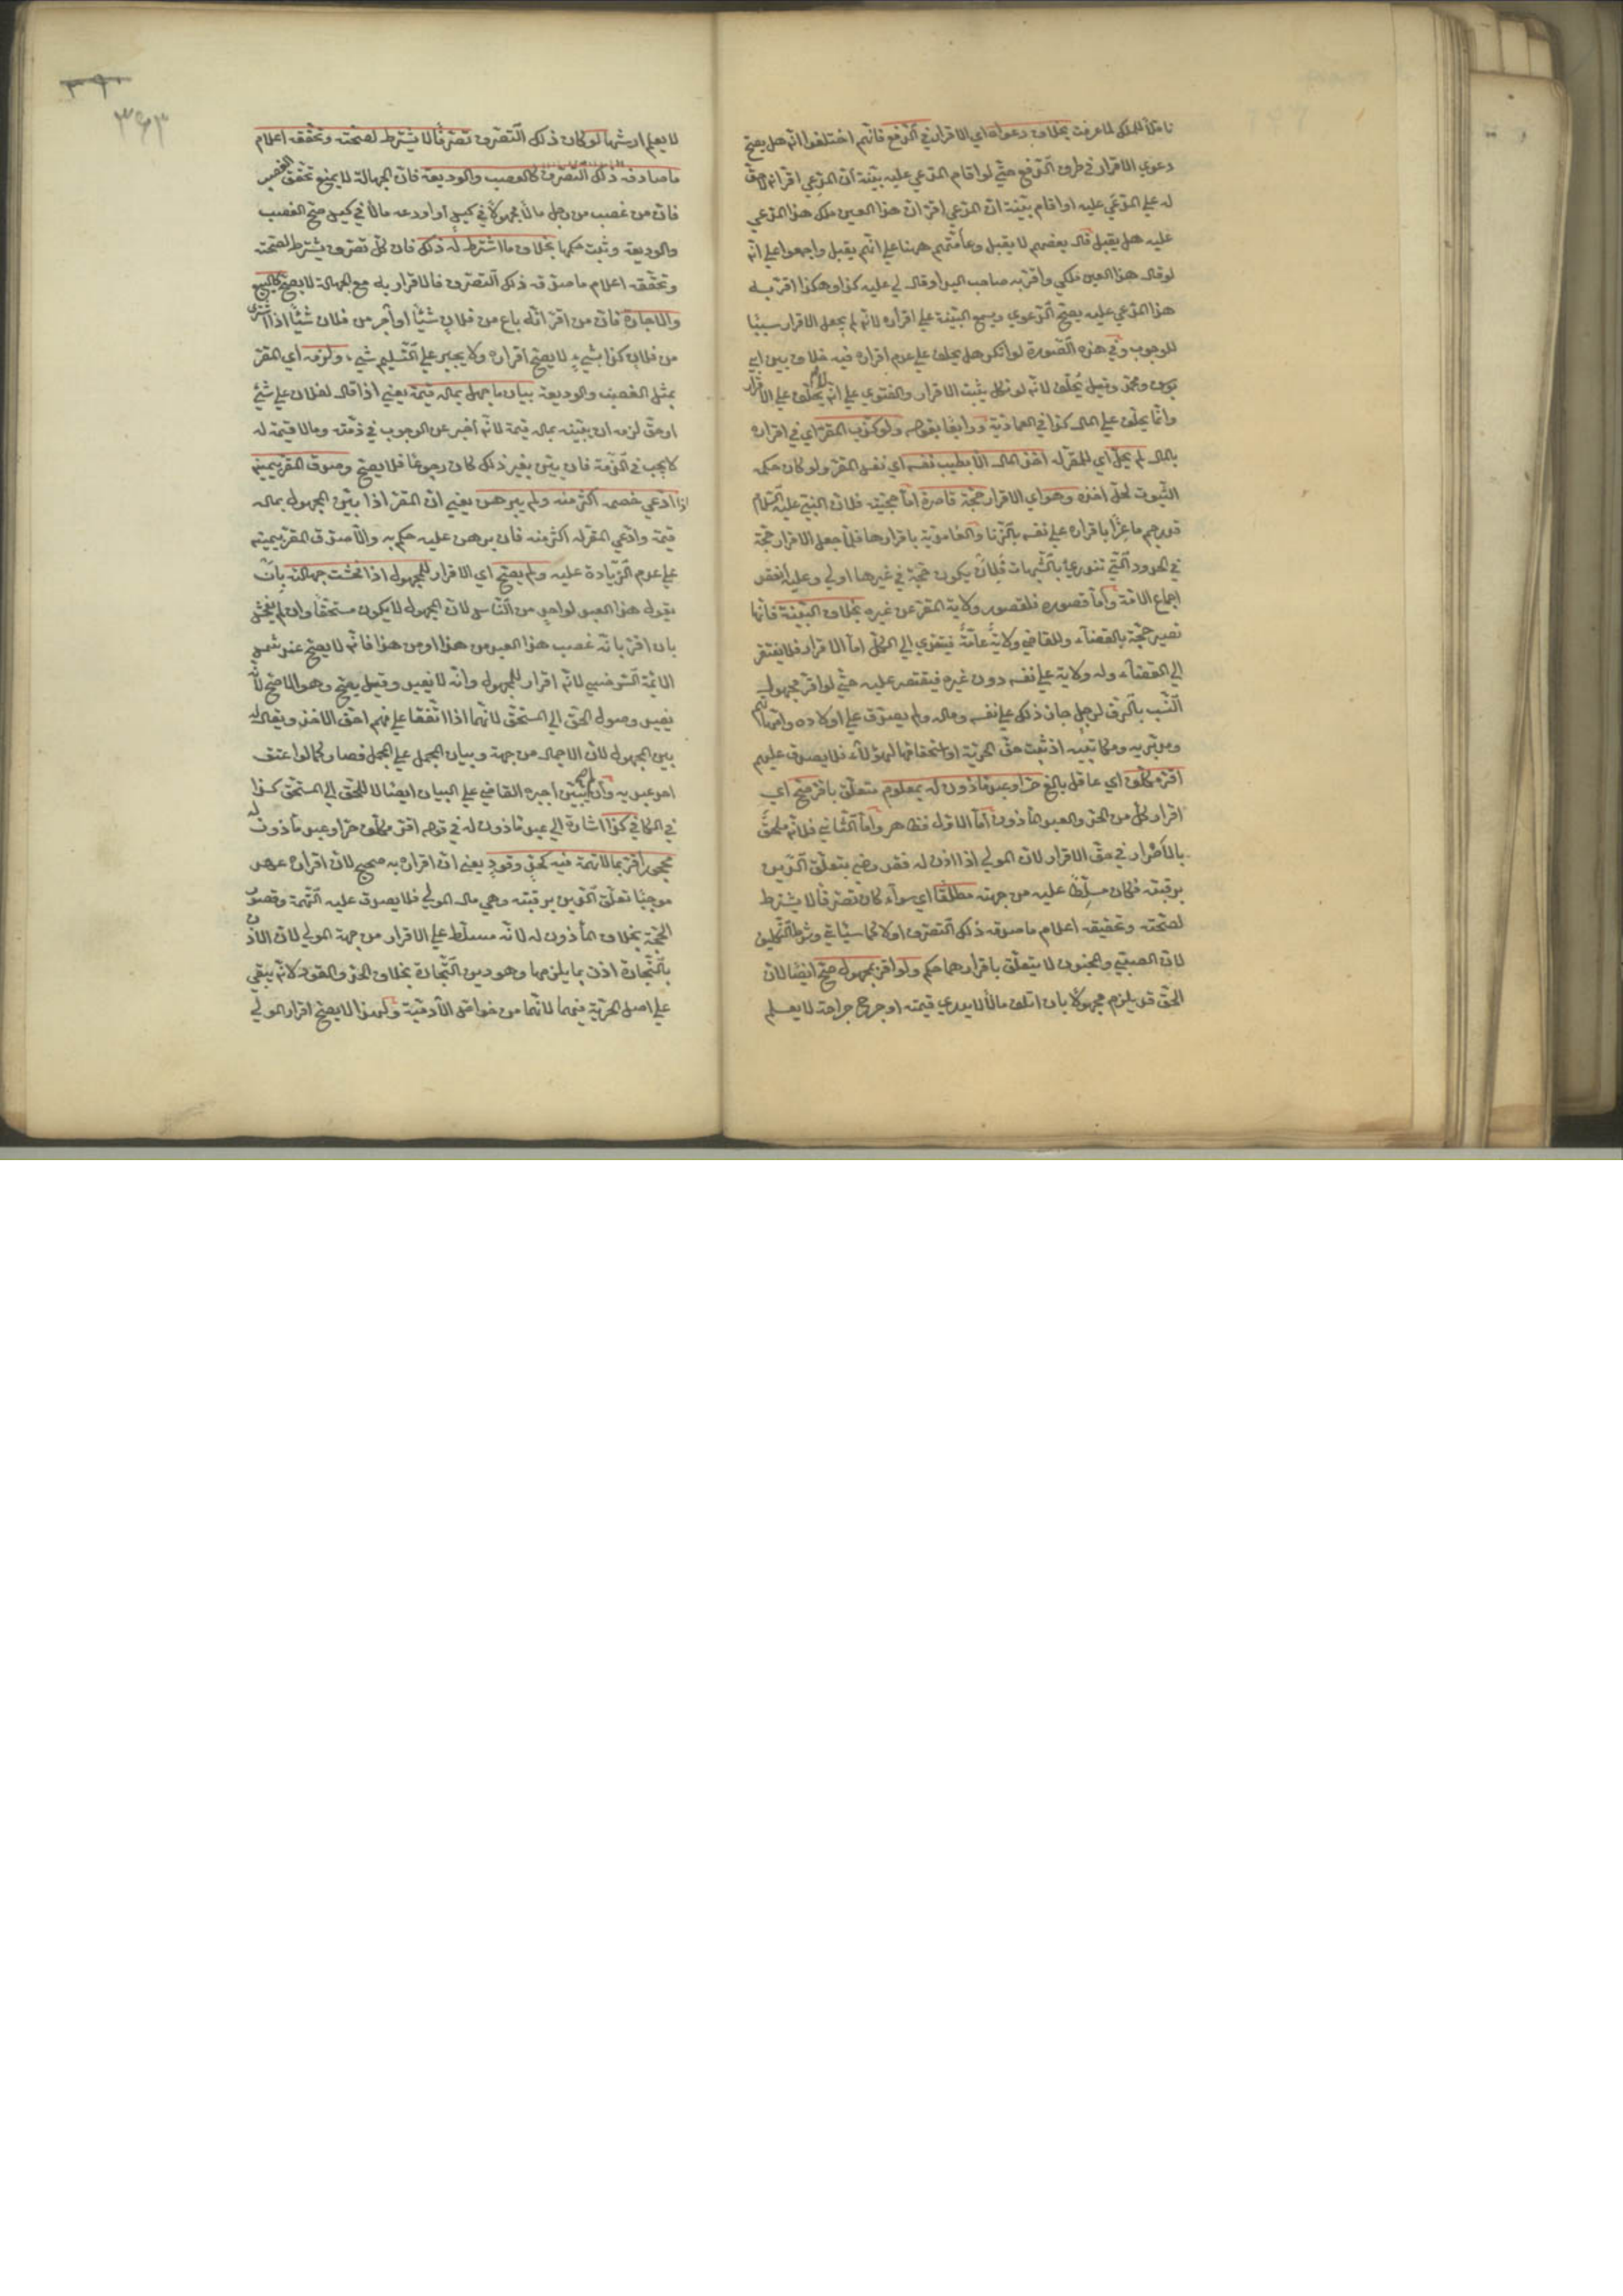 ناقلا للملك لما عرفت بخلاف دعواه اي الاقرار في الدفع فانهم اختلفوا انه هل يصح
دعوي الاقرار في طرف الدفع حتي لو اقام المدعي عليه بينة ان المدعي اقر انه لا حق
له علي المدعي عليه او اقام بينة ان المدعي اقر ان هذا العين ملك هذا المدعي
عليه هل يقبل قال بعضهم لا يقبل وعامتهم ههنا علي انه يقبل واجمعوا علي انه
لو قال هذا العين ملكي واقر به صاحب اليد او قال لي عليه كذا وهكذا اقر به
هذا المدعي عليه يصح الدعوي ويسمع البينة علي اقراره لانه لم يجعل الاقرار سببا
للوجوب وفي هذه الصورة لو انكر هل يحلف علي عدم اقراره فيه خلاف بين ابي
يوسف ومحمد وقيل يحلف لانه لو نكل يثبت الاقرار والفتوي علي انه لا يحلف علي الاقرار
وانما يحلف علي المال كذا في العمادية وايضا بقوله ولو كذب المقر اي في اقراره
بالمال لم يحل اي للمقر له اخذ المال الا بطيب نفسه اي نفس المقر ولو كان حكمه
الثبوت لحل اخذه وهو اي الاقرار حجة قاصرة اما حجيته فلان النبي عليه السلام
قد رجم ماعزا باقراره علي نفسه بالزنا والغامدية باقرارها فلما جعل الاقرار حجة
في الحدود التي تندرئ بالشبهات فلان يكون حجة في غيرها اولي وعليه انعقد
اجماع الامة واما قصوره فلقصور ولاية المقر عن غيره بخلاف البينة فانها
تصير حجة بالقضاء وللقاضي ولاية عامة فيتعدي الي الكل اما الاقرار فلا يفتقر
الي القضاء وله ولاية علي نفسه دون غيره فيقتصر عليه حتي لو اقر مجهول
النسب بالرق لرجل جاز ذلك علي نفسه وماله ولم يصدق علي اولاده وامهاتهم
ومدبريه ومكاتبيه اذ ثبت حق الحرية او استحقاقها لهؤلاء فلا يصدق عليهم
اقر مكلف اي عاقل بالغ حر او عبد ماذون له بمعلوم متعلق باقر صح اي
اقرار كل من الحر والعبد المأذون اما الاول فظاهر واما الثاني فلانه ملحق
بالأحرار في حق الاقرار لان المولي اذا اذن له فقد رضي بتعلق الدين
برقبته فكان مسلطا عليه من جهته مطلقا اي سواء كان تصرفا لا يشترط
لصحته وتحققه اعلام ما صدقه ذلك التصرف اولا كما سيأتي وشرط التكليف
لان الصبي والمجنون لا يتعلق باقرارهما حكم ولو اقر بمجهول صح ايضا لان
الحق قد يلزم مجهولا بان اتلف مالا لا يدري قيمته او جرح جراحة لا يعلم
٣٦٣
لا يعلم ارشها لو كان ذلك التصرف تصرفا لا يشترط لصحته وتحققه اعلام
ما صادفه ذلك التصرف كالغصب والوديعة فان الجهالة لا يمنع تحقق الغصب
فان من غصب من رجل مالا مجهولا في كيس او اودعه مالا في كيس صح الغصب
والوديعة وثبت حكمها بخلاف ما اشترط له ذلك فان كل تصرف يشترط لصحته
وتحققه اعلام ما صدقه ذلك التصرف فالاقرار به مع الجهالة لا يصح كالبيع
والاجارة فان من اقر انه باع من فلان شيئا او آجر من فلان شيئا اذا اشتري
من فلان كذا بشيء لا يصح اقراره ولا يجبر علي التسليم شيء ولزمه اي المقر
بمثل الغصب والوديعة بيان ما جهل بماله قيمة يعني اذا قال لفلان علي شئ
او حق لزمه ان يبينه بماله قيمة لانه اخبر عن الوجوب في ذمته وما لا قيمة له
لا يجب في الذمة فان بين بغير ذلك كان رجوعا فلا يصح وصدق المقر بيمينه
اذا ادعي خصمه اكثر منه ولم يبرهن يعني ان المقر اذا بين المجهول بماله
قيمة وادعي المقر له اكثر منه فان برهن عليه حكم به والا صدق المقر بيمينه
علي عدم الزيادة عليه ولم يصح اي الاقرار للمجهول اذا فحشت جهالته بان
يقول هذا العبد لواحد من الناس لان المجهول لا يكون مستحقا وان لم يفحش
بان اقر بانه غصب هذا العبد من هذا او من هذا فانه لا يصح عند شمس
الائمة السرخسي لانه اقرار للمجهول وانه لا يفيد وقيل يصح وهو الاصح لانه
يفيد وصول الحق الي المستحق لانهما اذا اتفقا علي اخذه فلهما حق الاخذ ويقال له
بين المجهول لان الاجمال من جهته وبيان المجمل علي المجمل فصار كما لو اعتق
احد عبديه وان لم يبين اجبره القاضي علي البيان ايصالا للحق الي المستحق كذا
في الكافي كذا اشارة الي عبد ماذون له في قوله اقر مكلف حر او عبد مأذون له
محجور اقر بما لا تهمة فيه كحد وقود يعني ان اقراره به صحيح لان اقراره عهد
موجبا لتعلق الدين برقبته وهي مال المولي فلا يصدق عليه للتهمة وقصور
الحجة بخلاف المأذون له لانه مسلط علي الاقرار من جهة المولي لان الاذن
بالتجارة اذن بما يلزمها وهو دين التجارة بخلاف الحد والقود لانه يبقي
علي اصل الحرية فيهما لانهما من خواص الآدمية ولهذا لا يصح اقرار المولي